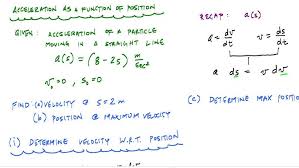 ACCELERATION AS A FUNCTION OF POSITION
GIVEN: ACCELERATION OF A PARTICLE
MOVING IN A STRAIGHT LINE
a(s) = (8 - 2s) m/sec²
v₀ = 0, s₀ = 0
FIND (a) VELOCITY @ s = 2m
(b) POSITION @ MAXIMUM VELOCITY
(i) DETERMINE VELOCITY W.R.T. POSITION
RECAP: a(s)
a = dv/dt v = ds/dt
a ds = v dv
(c) DETERMINE MAX POSITI